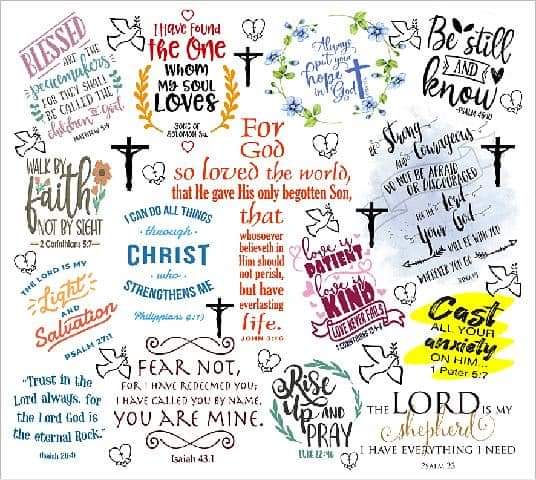 BLESSED
ARE THE
peacemakers
FOR THEY SHALL
BE CALLED THE
children of God
MATTHEW 5:9
I HAVE FOUND
the ONE
WHOM
MY SOUL
LOVES
SONG OF
SOLOMON 3:4
Always
put your
hope
in God
Be still
AND
know
PSALM 46:10
WALK BY
faith
NOT BY SIGHT
2 Corinthians 5:7
For
God
so loved the world,
that He gave His only begotten Son,
that
whosoever
believeth in
Him should
not perish,
but have
everlasting
life.
JOHN 3:16
BE Strong
AND Courageous
DO NOT BE AFRAID
OR DISCOURAGED
FOR THE Lord
Your God
WILL BE WITH YOU
WHEREVER YOU GO
I CAN DO ALL THINGS
through
CHRIST
who
STRENGTHENS ME
love is
PATIENT
love is
KIND
LOVE NEVER FAILS
THE LORD IS MY
Light
and
Salvation
PSALM 27:1
Cast
ALL YOUR
anxiety
ON HIM...
1 Peter 5:7
"Trust in the
Lord always, for
the Lord God is
the eternal Rock."
FEAR NOT,
FOR I HAVE REDEEMED YOU;
I HAVE CALLED YOU BY NAME,
YOU ARE MINE.
Isaiah 43.1
Rise
Up AND
PRAY
LUKE 22:46
THE LORD IS MY
shepherd
I HAVE EVERYTHING I NEED
PSALM 23